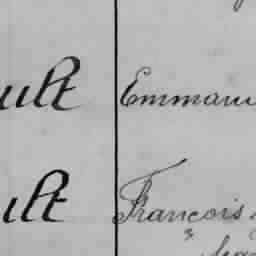 ult Emmanu
ult François